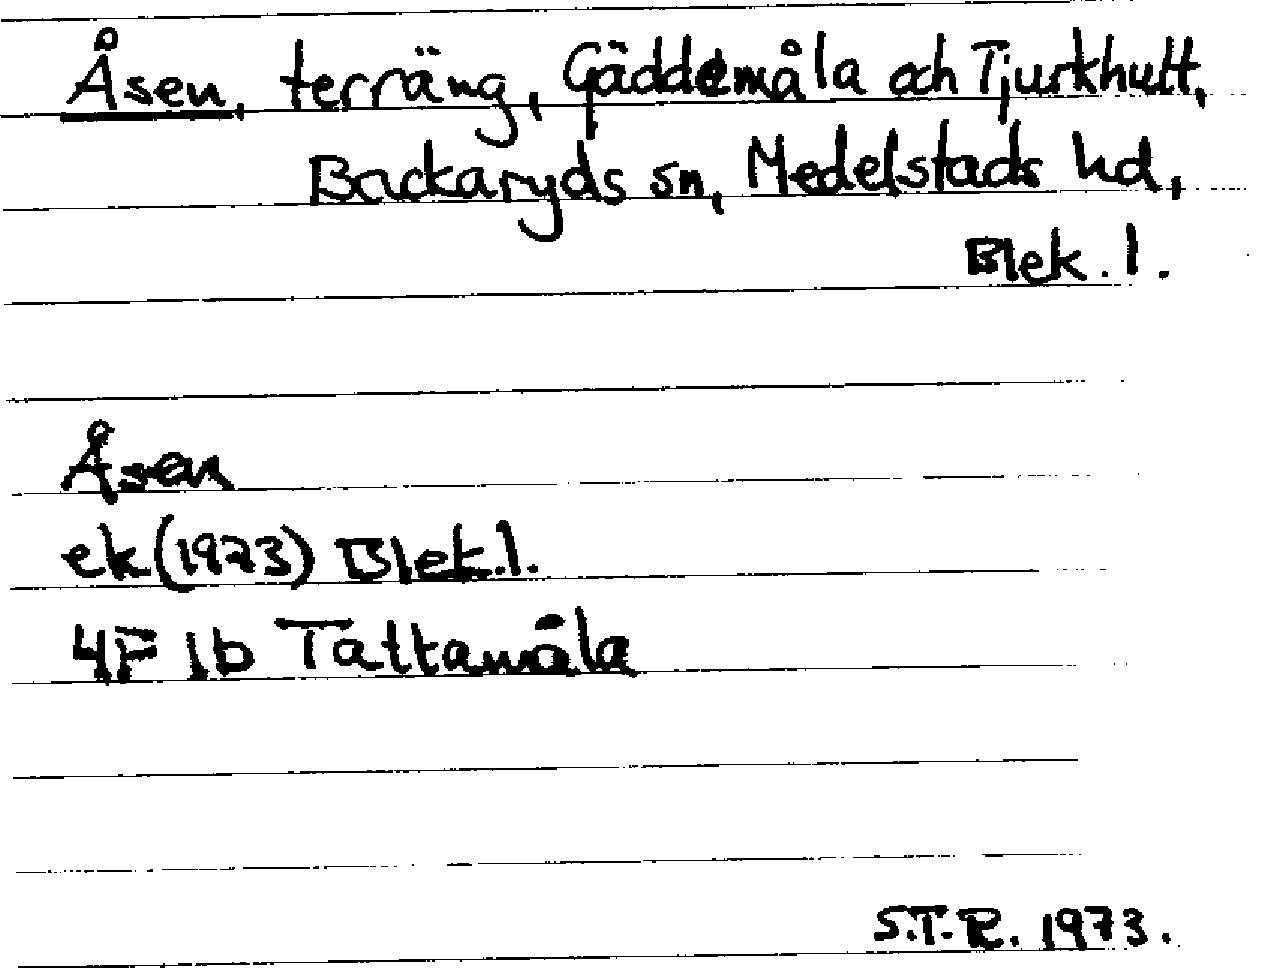 Åsen, terräng, Gäddemåla och Tjurkhutt,
Backaryds sn, Medelstads hd,
Blek. l.
Åsen
ek (1973) Blek. l.
4F 1b Tattamåla
S.T.R. 1973.